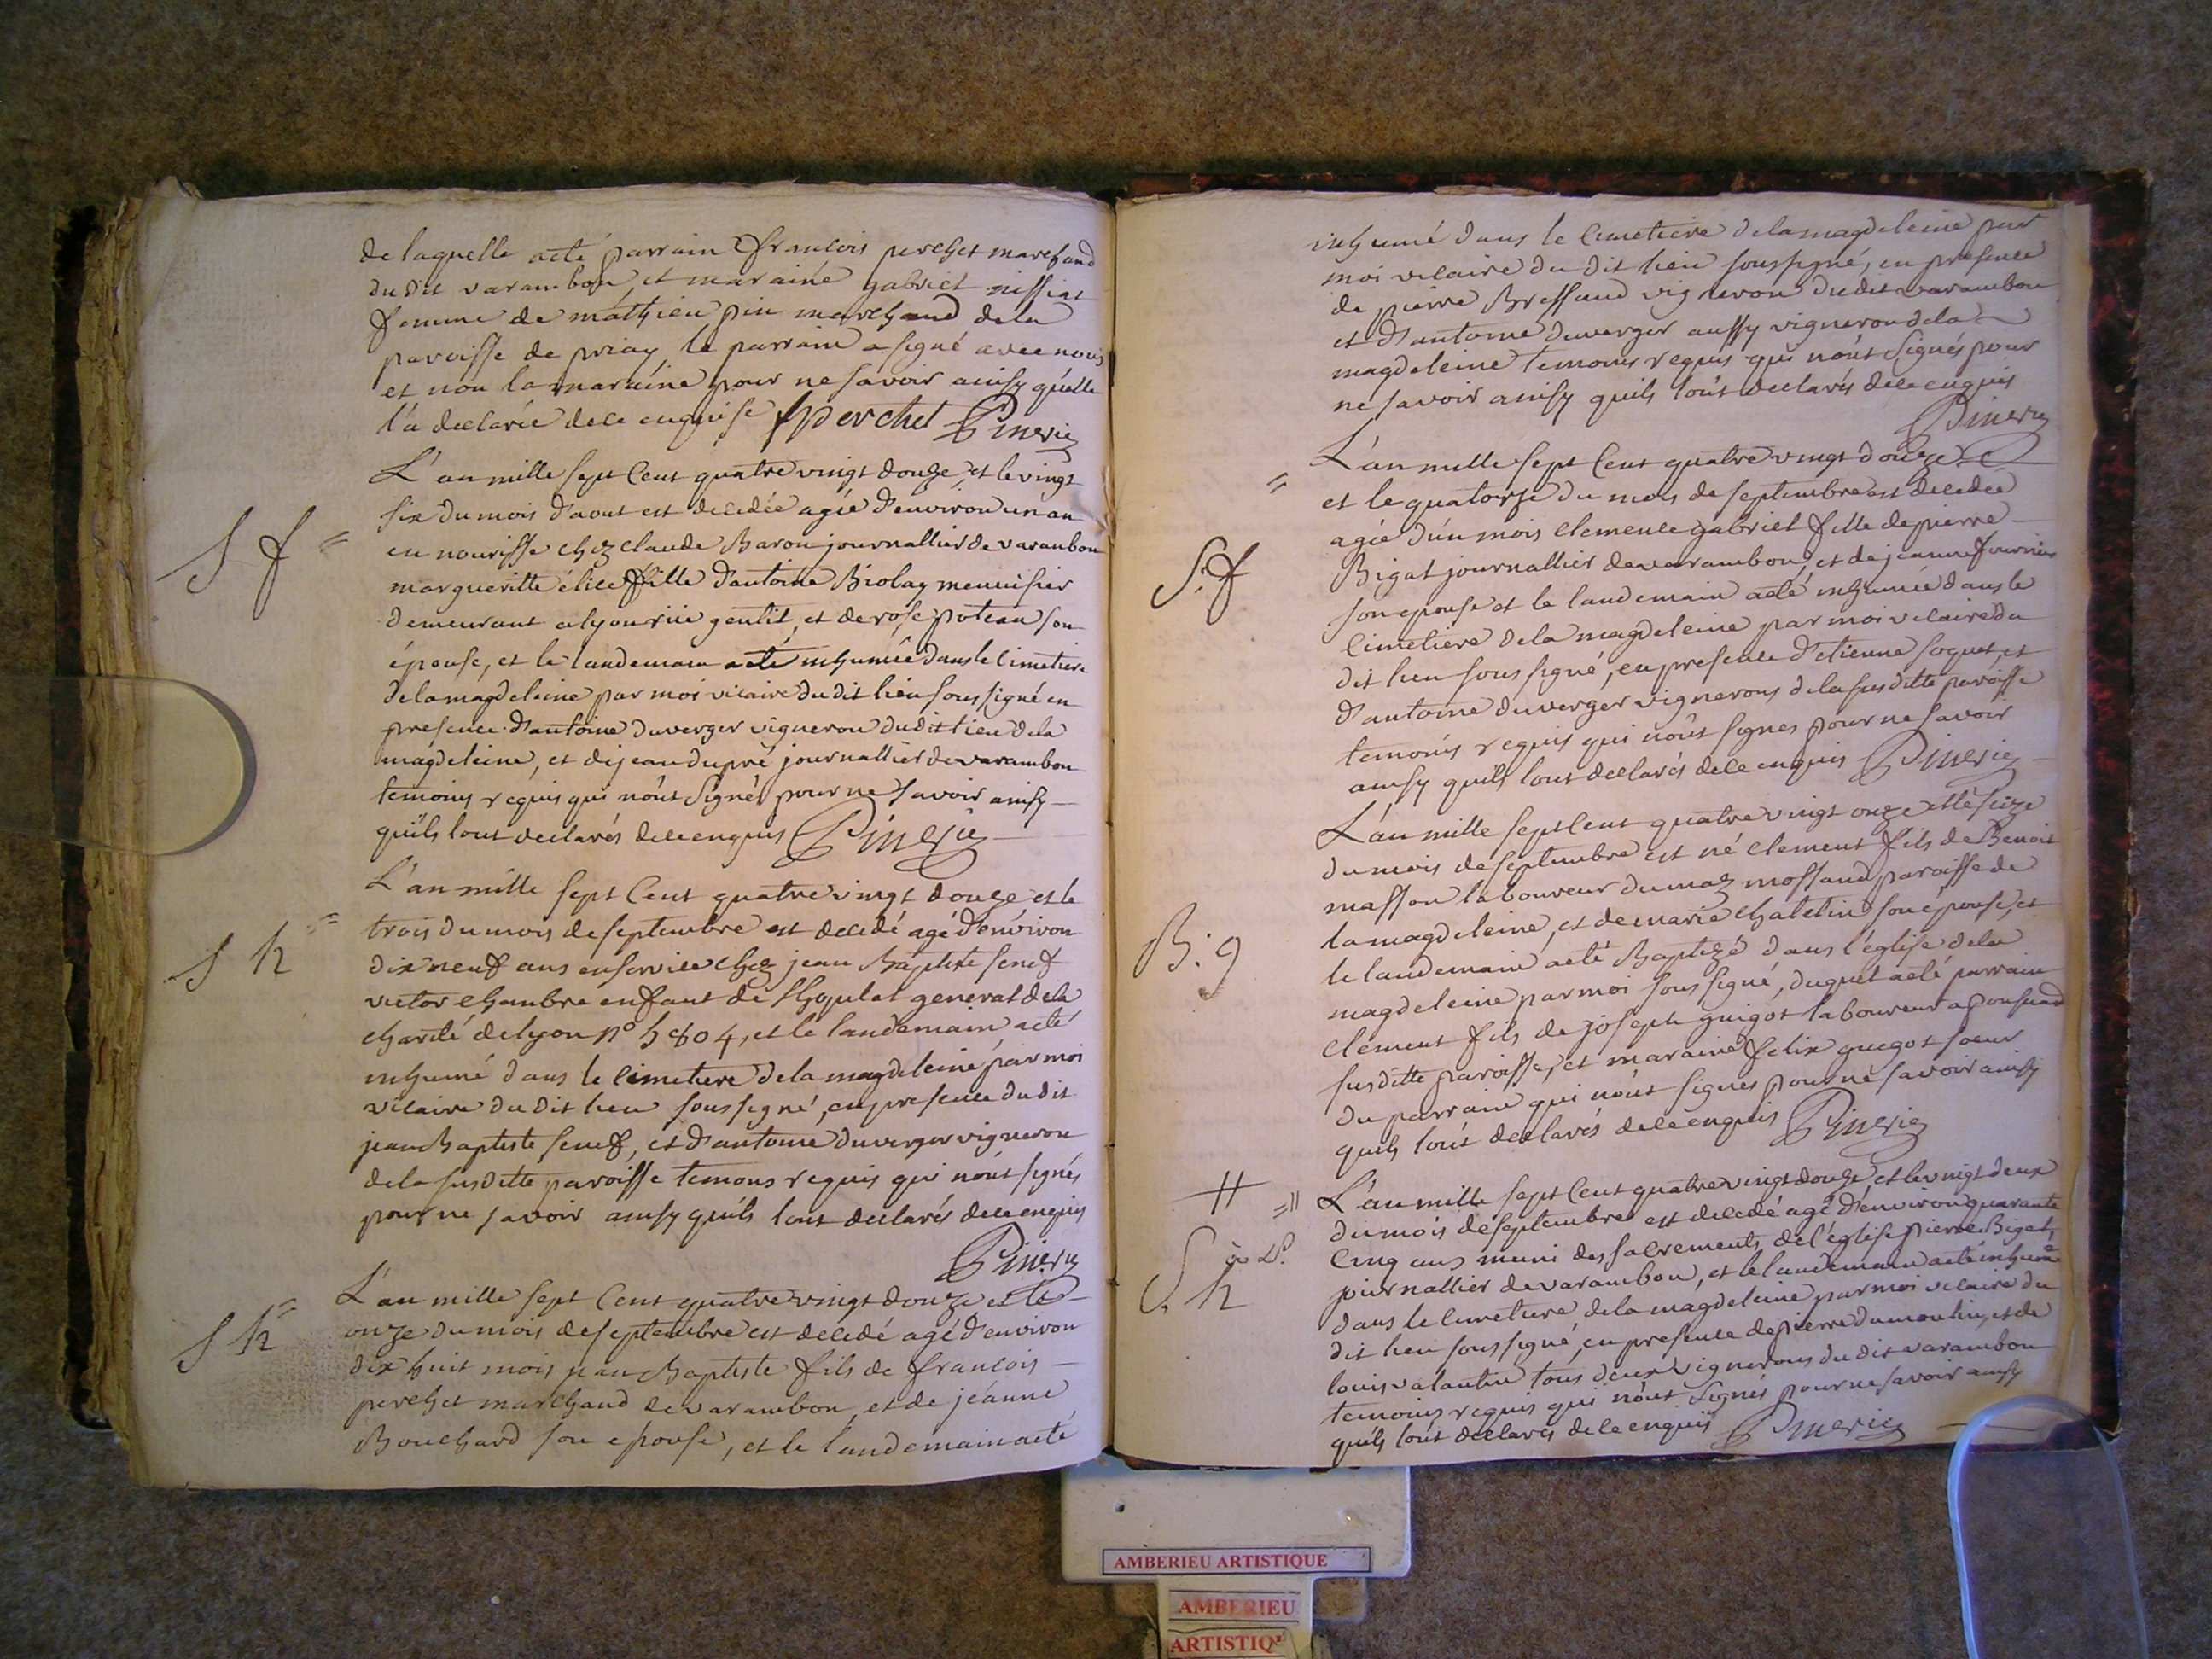 de laquelle a eté parrain françois perchet marchand
dudit varambon, et maraine gabriel nissiat
femme de mathieu pin marchand de la
paroisse de priay, le parrain a signé avec nous
et non la maraine pour ne savoir ainsy qu'elle
l'a declarée de ce enquise fperchet Pinerie
L'an mille sept cent quatre vingt douze, et le vingt
six du mois d'aout est decedée agée d'environ un an
en nourisse chez claude Baron journallier de varambon
margueritte élice fille d'antoine Biolay menuisier
demeurant a lyon rüe gentit, et de rose poteau son
épouse, et le landemain a eté inhumée dans le cimetiere
de la magdeleine par moi vicaire du dit lieu soussigné en
presence d'antoine duverger vigneron dudit lieu de la
magdeleine, et de jean dupré journallier de varambon
temoins requis qui n'ont signés pour ne savoir ainsy
qu'ils l'ont declarés de ce enquis Pinerie
L'an mille sept cent quatre vingt douze et le
trois du mois de septembre est decedé agé d'environ
dix neuf ans en service chez jean Baptiste senef
victor chambre enfant de l'hopital general de la
charité de lyon n° h 804, et le landemain a eté
inhumé dans le cimetiere de la magdeleine par moi
vicaire du dit lieu soussigné, en presence du dit
jean Baptiste senef, et d'antoine duverger vigneron
de la susditte paroisse temoins requis qui n'ont signés
pour ne savoir ainsy qu'ils l'ont declarés de ce enquis
Pinerie
L'an mille sept cent quatre vingt douze et le
onze du mois de septembre est decedé agé d'environ
dix huit mois jean Baptiste fils de francois
perchet marchand de varambon, et de jeanne
Bouchard son épouse, et le landemain a eté
S f =
S h =
S h =
inhumé dans le cimetiere de la magdeleine par
moi vicaire du dit lieu soussigné, en presence
de pierre Bressand vigneron dudit varambon
et d'antoine duverger aussy vigneron de la
magdeleine temoins requis qui n'ont signés pour
ne savoir ainsy quils l'ont declarés de ce enquis
Pinerie
L'an mille sept cent quatre vingt douze
et le quatorze du mois de septembre est decedée
agée d'un mois clemence gabriel fille de pierre
Bigat journallier de varambon, et de jeanne fournier
son epouse et le landemain a eté inhumée dans le
cimetiere de la magdeleine par moi vicaire du
dit lieu soussigné, en presence d'etienne soquet et
d'antoine duverger vignerons de la susditte paroisse
temoins requis qui n'ont signes pour ne savoir
ainsy qu'ils l'ont declarés de ce enquis Pinerie
L'an mille sept cent quatre vingt onze et le seize
du mois de septembre est né clement fils de Benoit
masson laboureur du maz mossand paroisse de
la magdeleine, et de marie chatelin son épouse, et
le landemain a eté Baptizé dans l'église de la
magdeleine par moi soussigné, duquel a eté parrain
clement fils de joseph guigot laboureur a ponsuard
susditte paroisse, et maraine felix guegot soeur
du parrain qui n'ont signés pour ne savoir ainsy
quils l'ont declarés de ce enquis Pinerie
L'an mille sept cent quatre vingt douze, et le vingt deux
du mois de septembre est decedé agé d'environ quarante
cinq ans muni des sacrements de l'église pierre Bigat,
journallier de varambon, et le landemain a eté inhumé
dans le cimetiere de la magdeleine par moi vicaire du
dit lieu soussigné, en presence de pierre dumoulin, et de
louis valantin tous deux vignerons du dit varambon
temoins requis qui n'ont signés pour ne savoir ainsy
quils l'ont declarés de ce enquis Pinerie
=
S. f
B. g
S. h
AMBERIEU ARTISTIQUE
AMBERIEU
ARTISTIQ